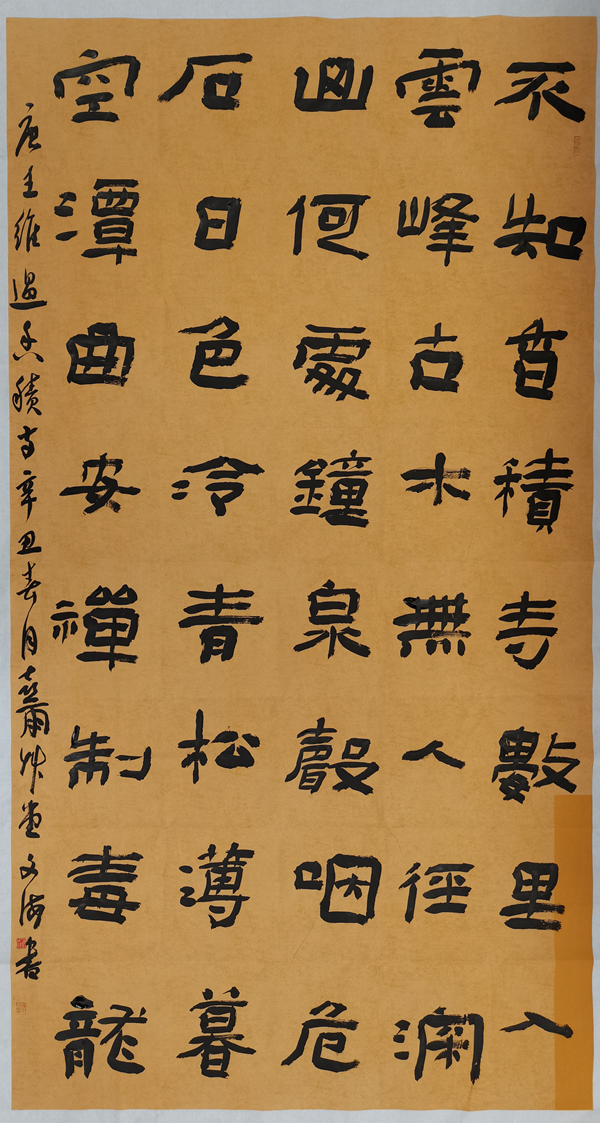 不知香積寺數里入
雲峰古木無人徑深
山何處鐘泉聲咽危
石日色冷青松薄暮
空潭曲安禪制毒龍
唐王維過香積寺辛丑春月竹堂文海書